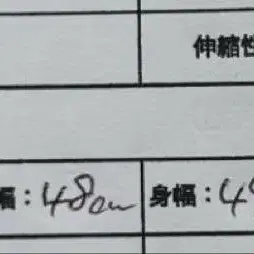 伸縮性
幅：48cm 身幅：4